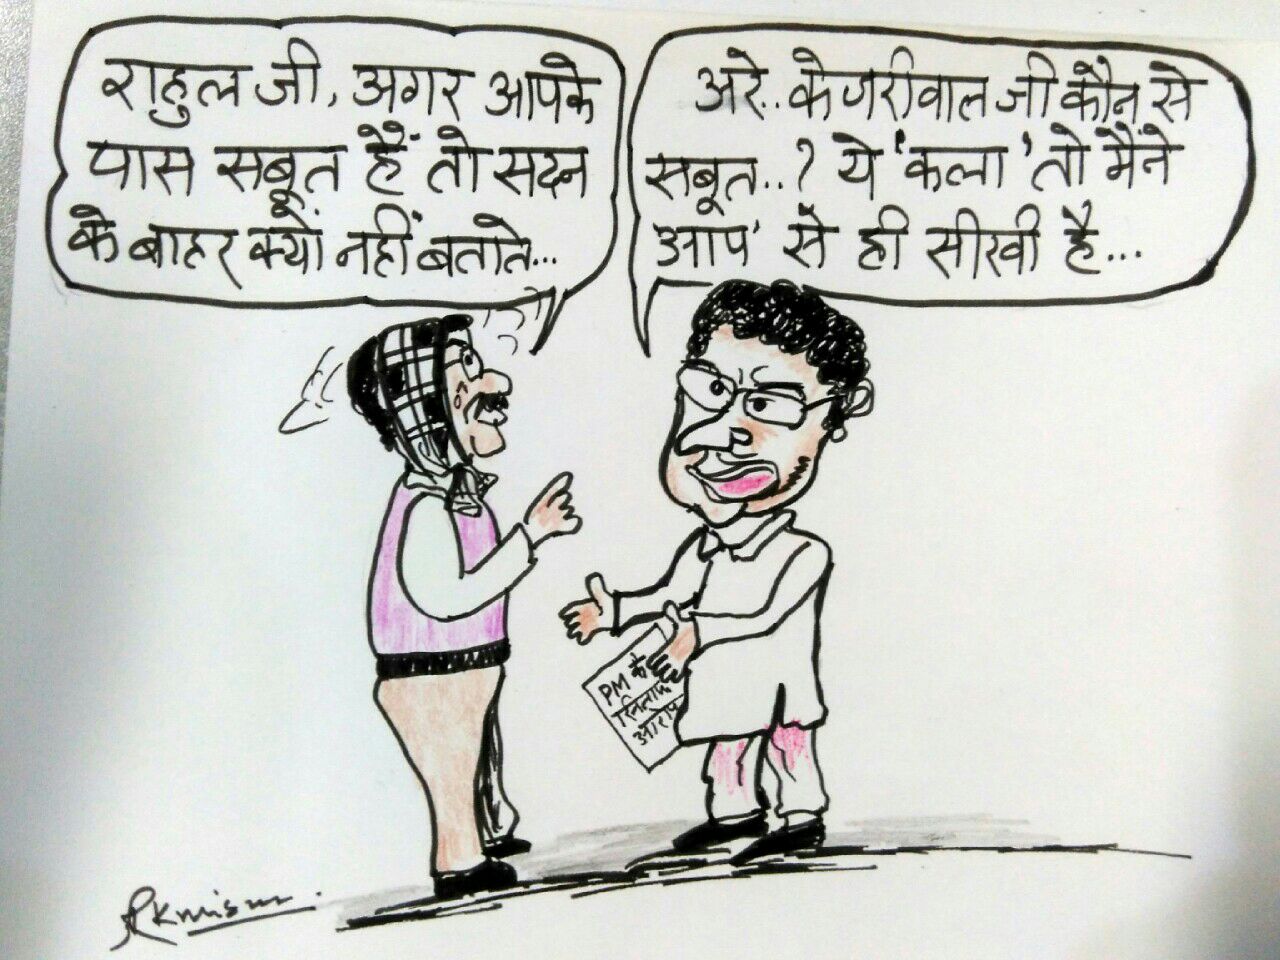 राहुल जी, अगर आपके
पास सबूत हैं तो सदन
के बाहर क्यों नहीं बताते...
अरे.. केजरीवाल जी कौन से
सबूत..? ये 'कला' तो मैंने
आप' से ही सीखी है...
PM के
खिलाफ
आरोप